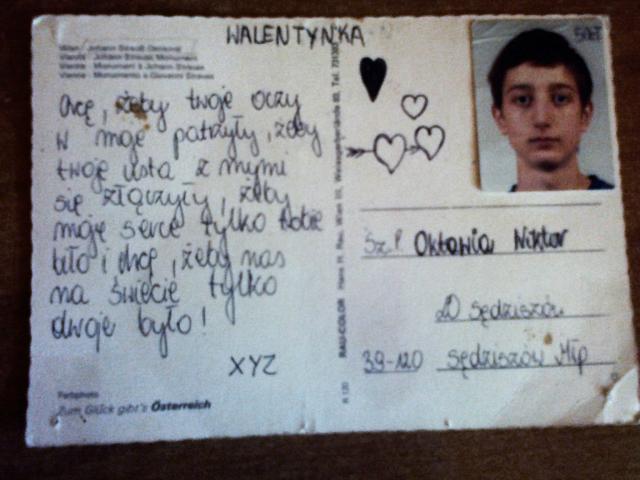 WALENTYNKA
Wien - Johann Strauß Denkmal
Vienna - Johann Strauss Monument
Vienne - Monument à Johann Strauss
Vienna - Monumento a Giovanni Strauss
chcę, żeby twoje oczy
w moje patrzyły, żeby
twoje usta z mymi
się złączyły, żeby
moje serce tylko tobie
biło i chcę, żeby nas
na świecie tylko
dwoje było!
XYZ
Farbphoto
Zum Glück gibt's Österreich
RAU-COLOR Hans H. Rau, Wien
R 120
Sz.P. Oktawia Niktor
LO Sędziszów
39-120 Sędziszów Młp